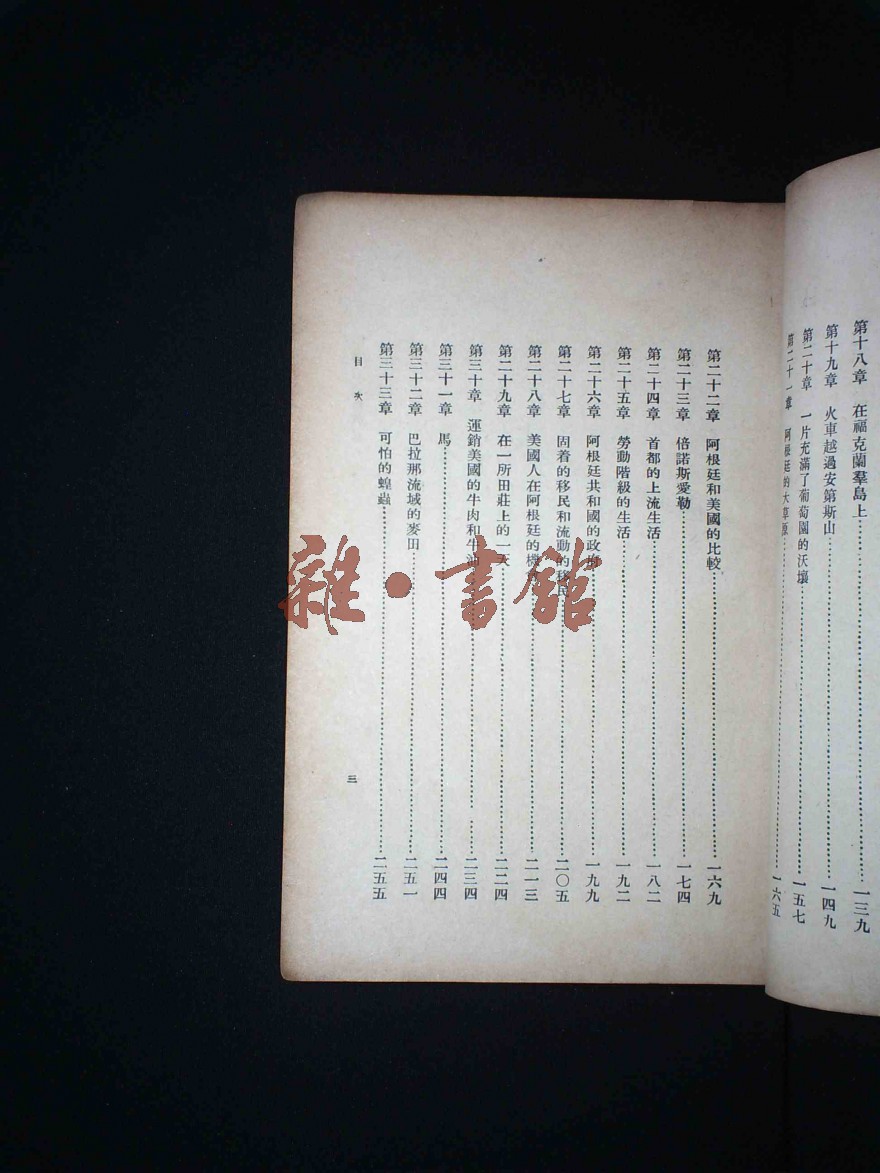 第十八章 在福克蘭羣島上……一三九
第十九章 火車越過安第斯山……一四九
第二十章 一片充滿了葡萄園的沃壤……一五七
第二十一章 阿根廷的大草原……一六五
第二十二章 阿根廷和美國的比較……一六九
第二十三章 倍諾斯愛勒……一七四
第二十四章 首都的上流生活……一八二
第二十五章 勞動階級的生活……一九二
第二十六章 阿根廷共和國的政府……一九九
第二十七章 固着的移民和流動的移民……二〇五
第二十八章 美國人在阿根廷的機……二一三
第二十九章 在一所田莊上的一天……二二四
第三十章 運銷美國的牛肉和牛油……二三四
第三十一章 馬……二四四
第三十二章 巴拉那流域的麥田……二五一
第三十三章 可怕的蝗蟲……二五五
目次
三
雜·書館